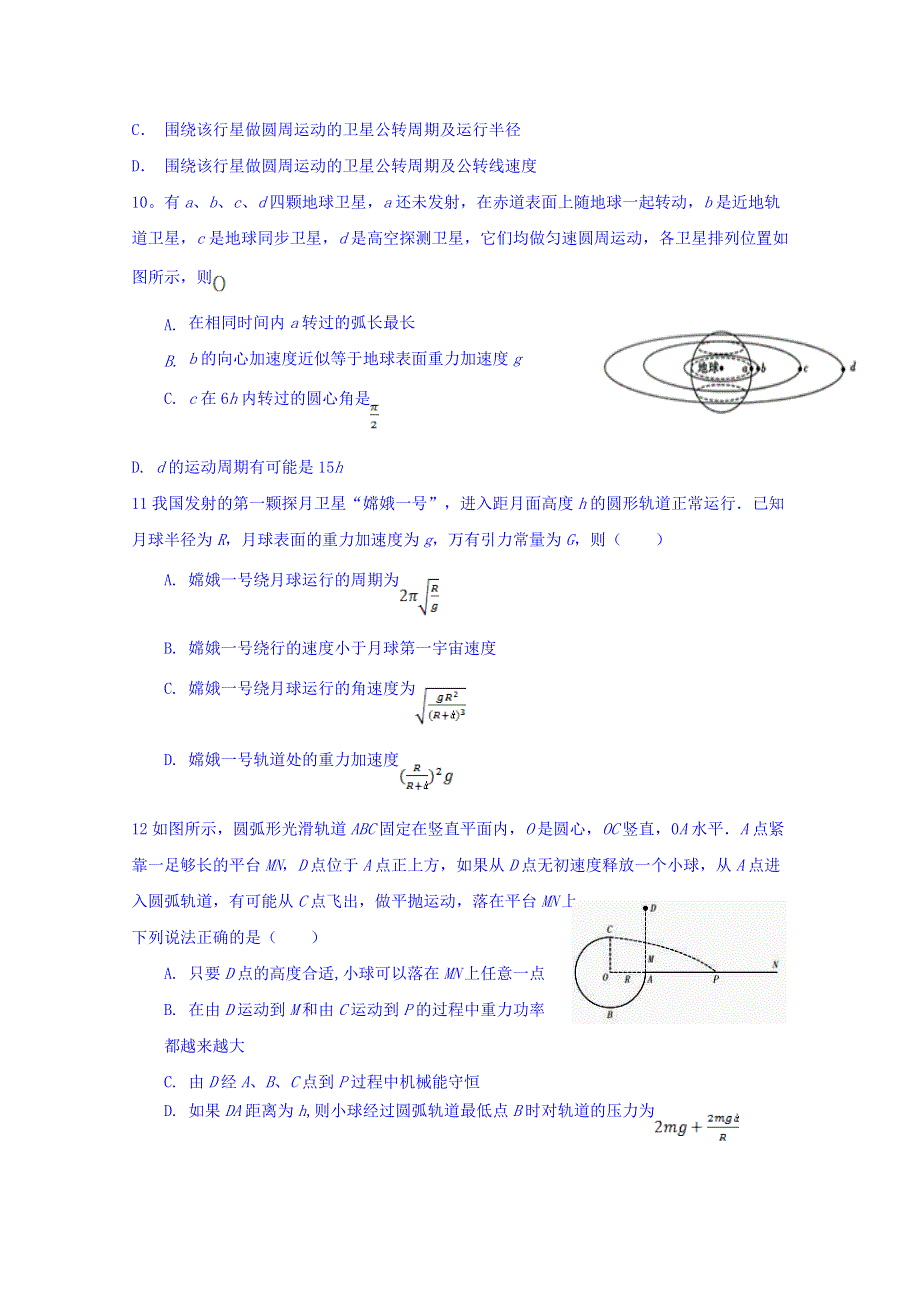 C． 围绕该行星做圆周运动的卫星公转周期及运行半径
D． 围绕该行星做圆周运动的卫星公转周期及公转线速度
10。有 a、b、c、d 四颗地球卫星，a 还未发射，在赤道表面上随地球一起转动，b 是近地轨
道卫星，c 是地球同步卫星，d 是高空探测卫星，它们均做匀速圆周运动，各卫星排列位置如
图所示，则()
A. 在相同时间内 a 转过的弧长最长
B. b 的向心加速度近似等于地球表面重力加速度 g
C. c 在 6h 内转过的圆心角是 π/2
地球 a b c d
D. d 的运动周期有可能是 15h
11 我国发射的第一颗探月卫星“嫦娥一号”，进入距月面高度 h 的圆形轨道正常运行．已知
月球半径为 R，月球表面的重力加速度为 g，万有引力常量为 G，则（　　）
A. 嫦娥一号绕月球运行的周期为 2π√(R/g)
B. 嫦娥一号绕行的速度小于月球第一宇宙速度
C. 嫦娥一号绕月球运行的角速度为 √(gR²/(R+h)³)
D. 嫦娥一号轨道处的重力加速度 (R/(R+h))²g
12 如图所示，圆弧形光滑轨道 ABC 固定在竖直平面内，O 是圆心，OC 竖直，0A 水平．A 点紧
靠一足够长的平台 MN，D 点位于 A 点正上方，如果从 D 点无初速度释放一个小球，从 A 点进
入圆弧轨道，有可能从 C 点飞出，做平抛运动，落在平台 MN 上
下列说法正确的是（　　）
A. 只要 D 点的高度合适,小球可以落在 MN 上任意一点
B. 在由 D 运动到 M 和由 C 运动到 P 的过程中重力功率
都越来越大
C. 由 D 经 A、B、C 点到 P 过程中机械能守恒
D. 如果 DA 距离为 h,则小球经过圆弧轨道最低点 B 时对轨道的压力为 2mg+2mgh/R
D
C
M N
O R A P
B